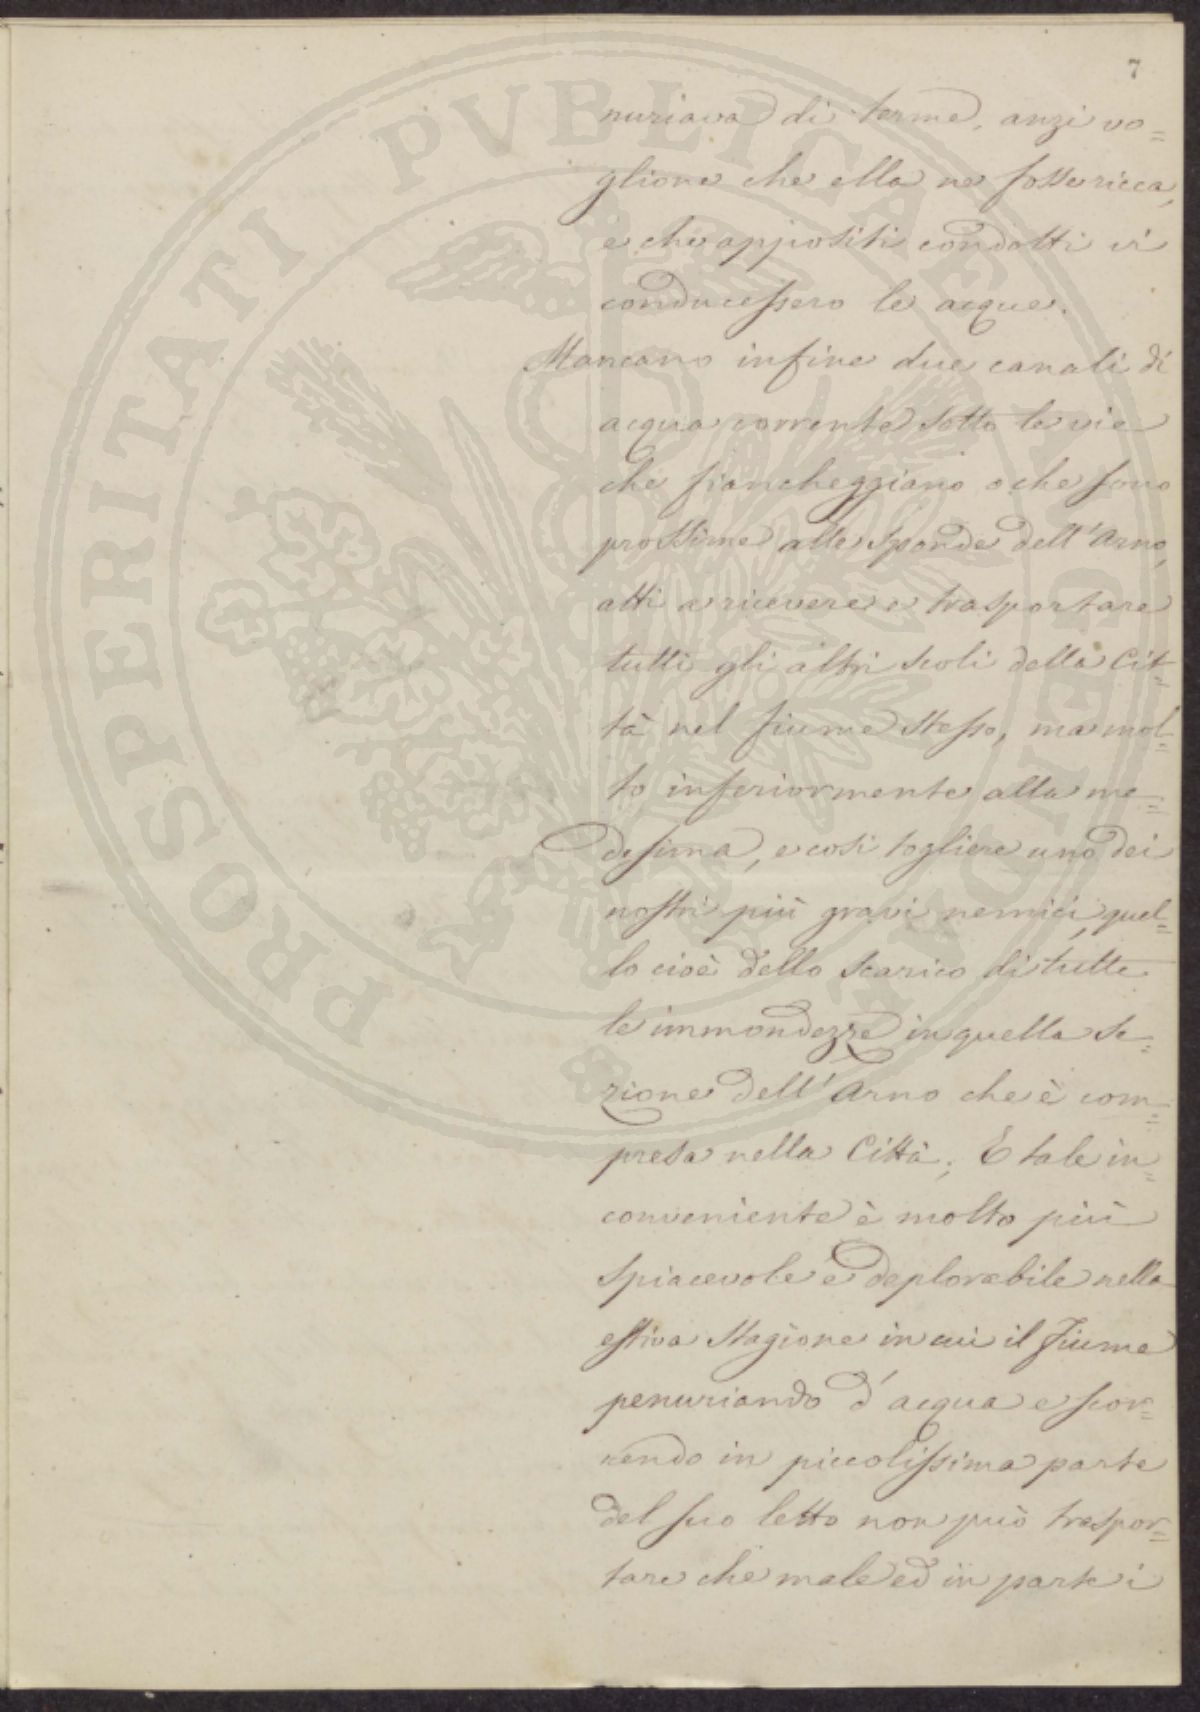 7
nuriava di terme, anzi vo=
gliono che ella ne fosse ricca,
e che appositi condotti vi
conducessero le acque.
Mancano infine due canali di
acqua corrente sotto le vie
che fiancheggiano o che sono
prossime alle sponde dell'Arno,
atti a ricevere e trasportare
tutti gli altri scoli della Cit=
tà nel fiume stesso, ma mol=
to inferiormente alla me=
desima, e così togliere uno dei
nostri più gravi nemici, quel=
lo cioè dello scarico di tutte
le immondezze in quella se=
zione dell'Arno che è com=
presa nella Città; E tale in=
conveniente è molto più
spiacevole e deplorabile nella
estiva Stagione in cui il fiume
penuriando d'acqua e scor=
rendo in piccolissima parte
del suo letto non può traspor=
tare che male ed in parte i
PROSPERITATI PVBLICAE AVGENDAE